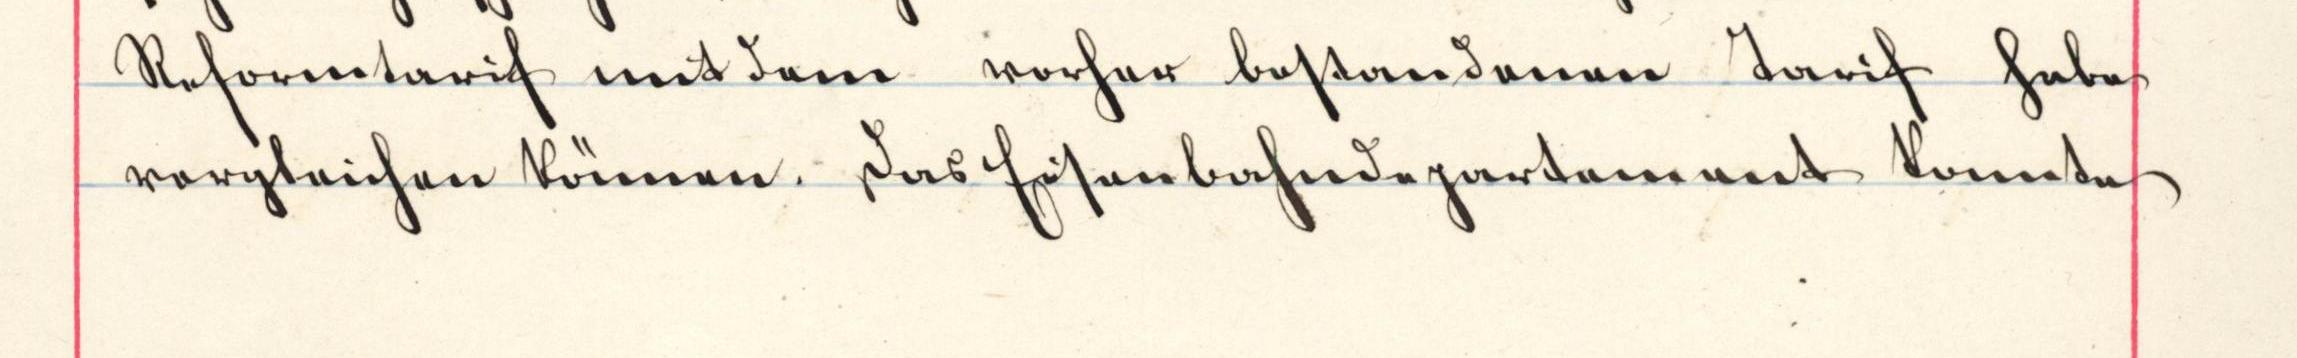 Reformtarif mit dem vorher bestandenen Tarif habe
vergleichen können. Das Eisenbahndepartement konnte